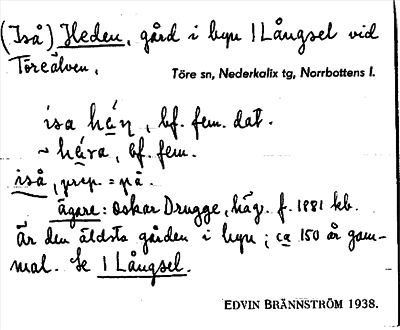 (Iså) Heden, gård i byn 1 Långsel vid
Töreälven.
Töre sn, Nederkalix tg, Norrbottens l.
isa hén, bf. fem. dat.
~ héra, bf. fem.
iså, prep. = på.
ägare: Oskar Drugge, häg. f. 1881 kb.
Är den äldsta gården i byn; ca 150 år gam-
mal. Se 1 Långsel.
EDVIN BRÄNNSTRÖM 1938.